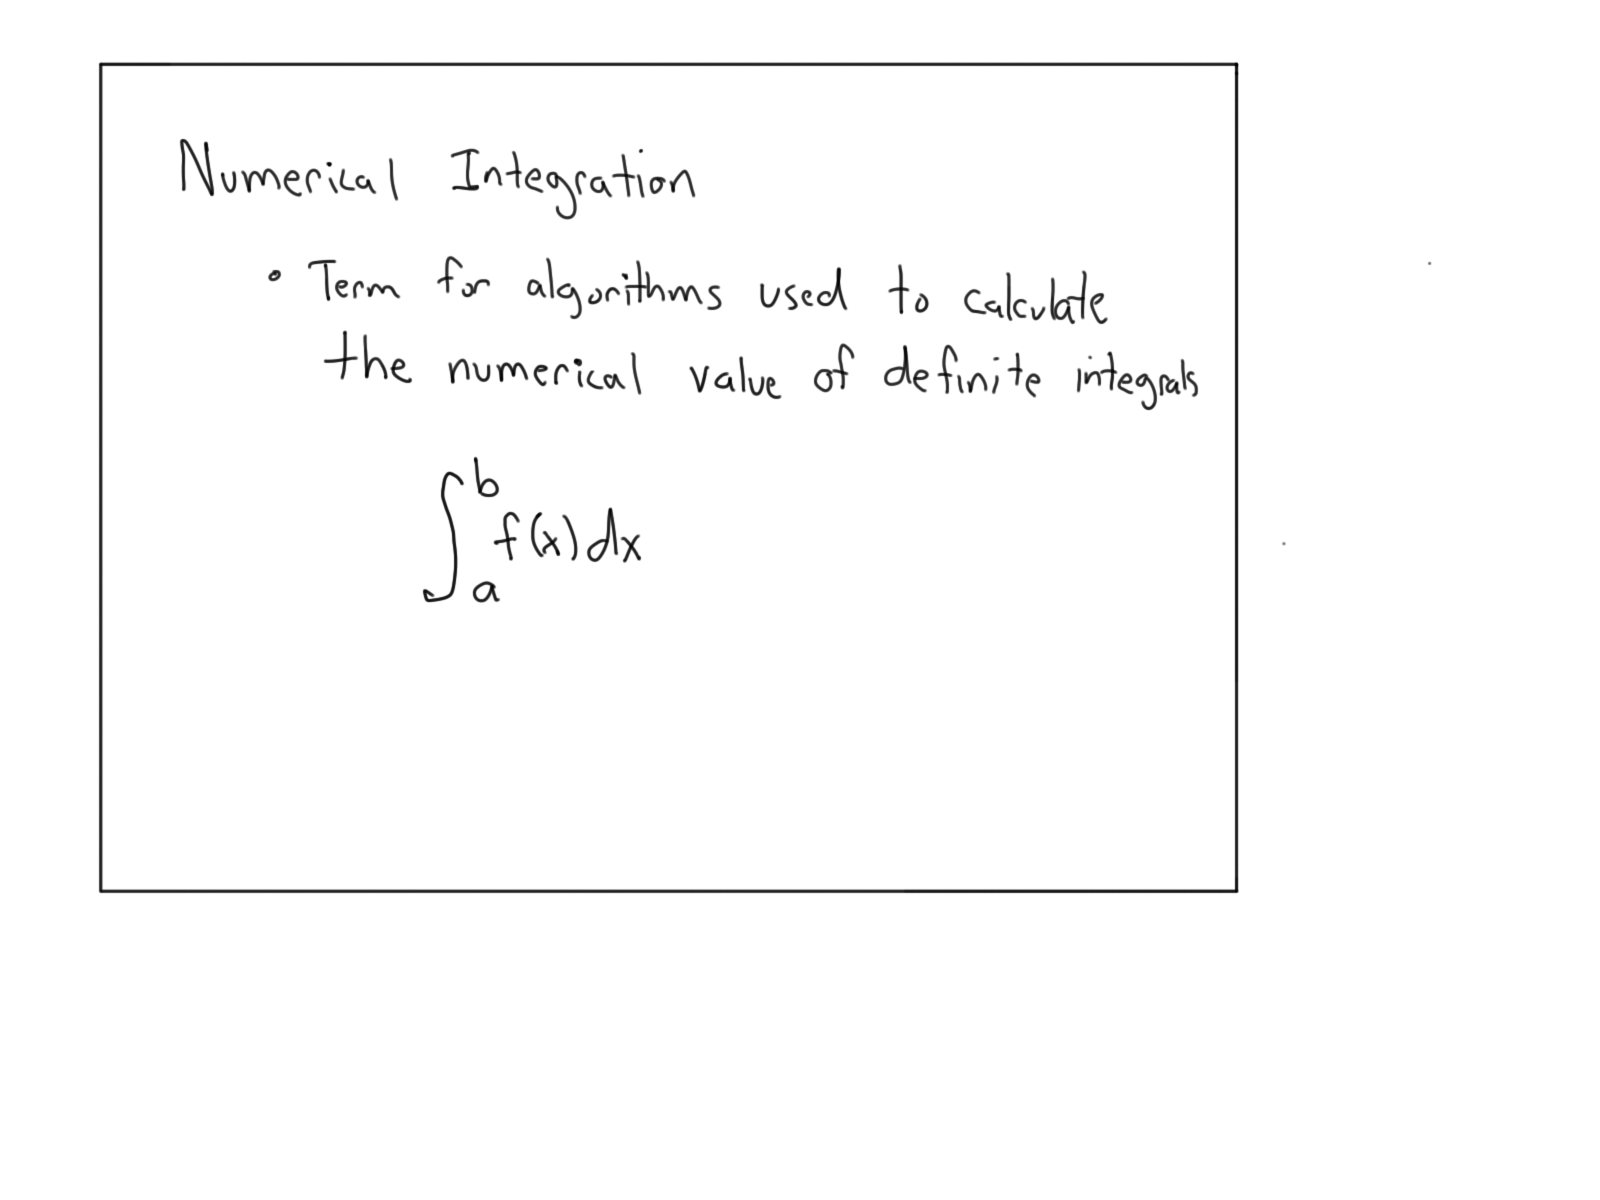 Numerical Integration
• Term for algorithms used to calculate
the numerical value of definite integrals
∫_a^b f(x) dx